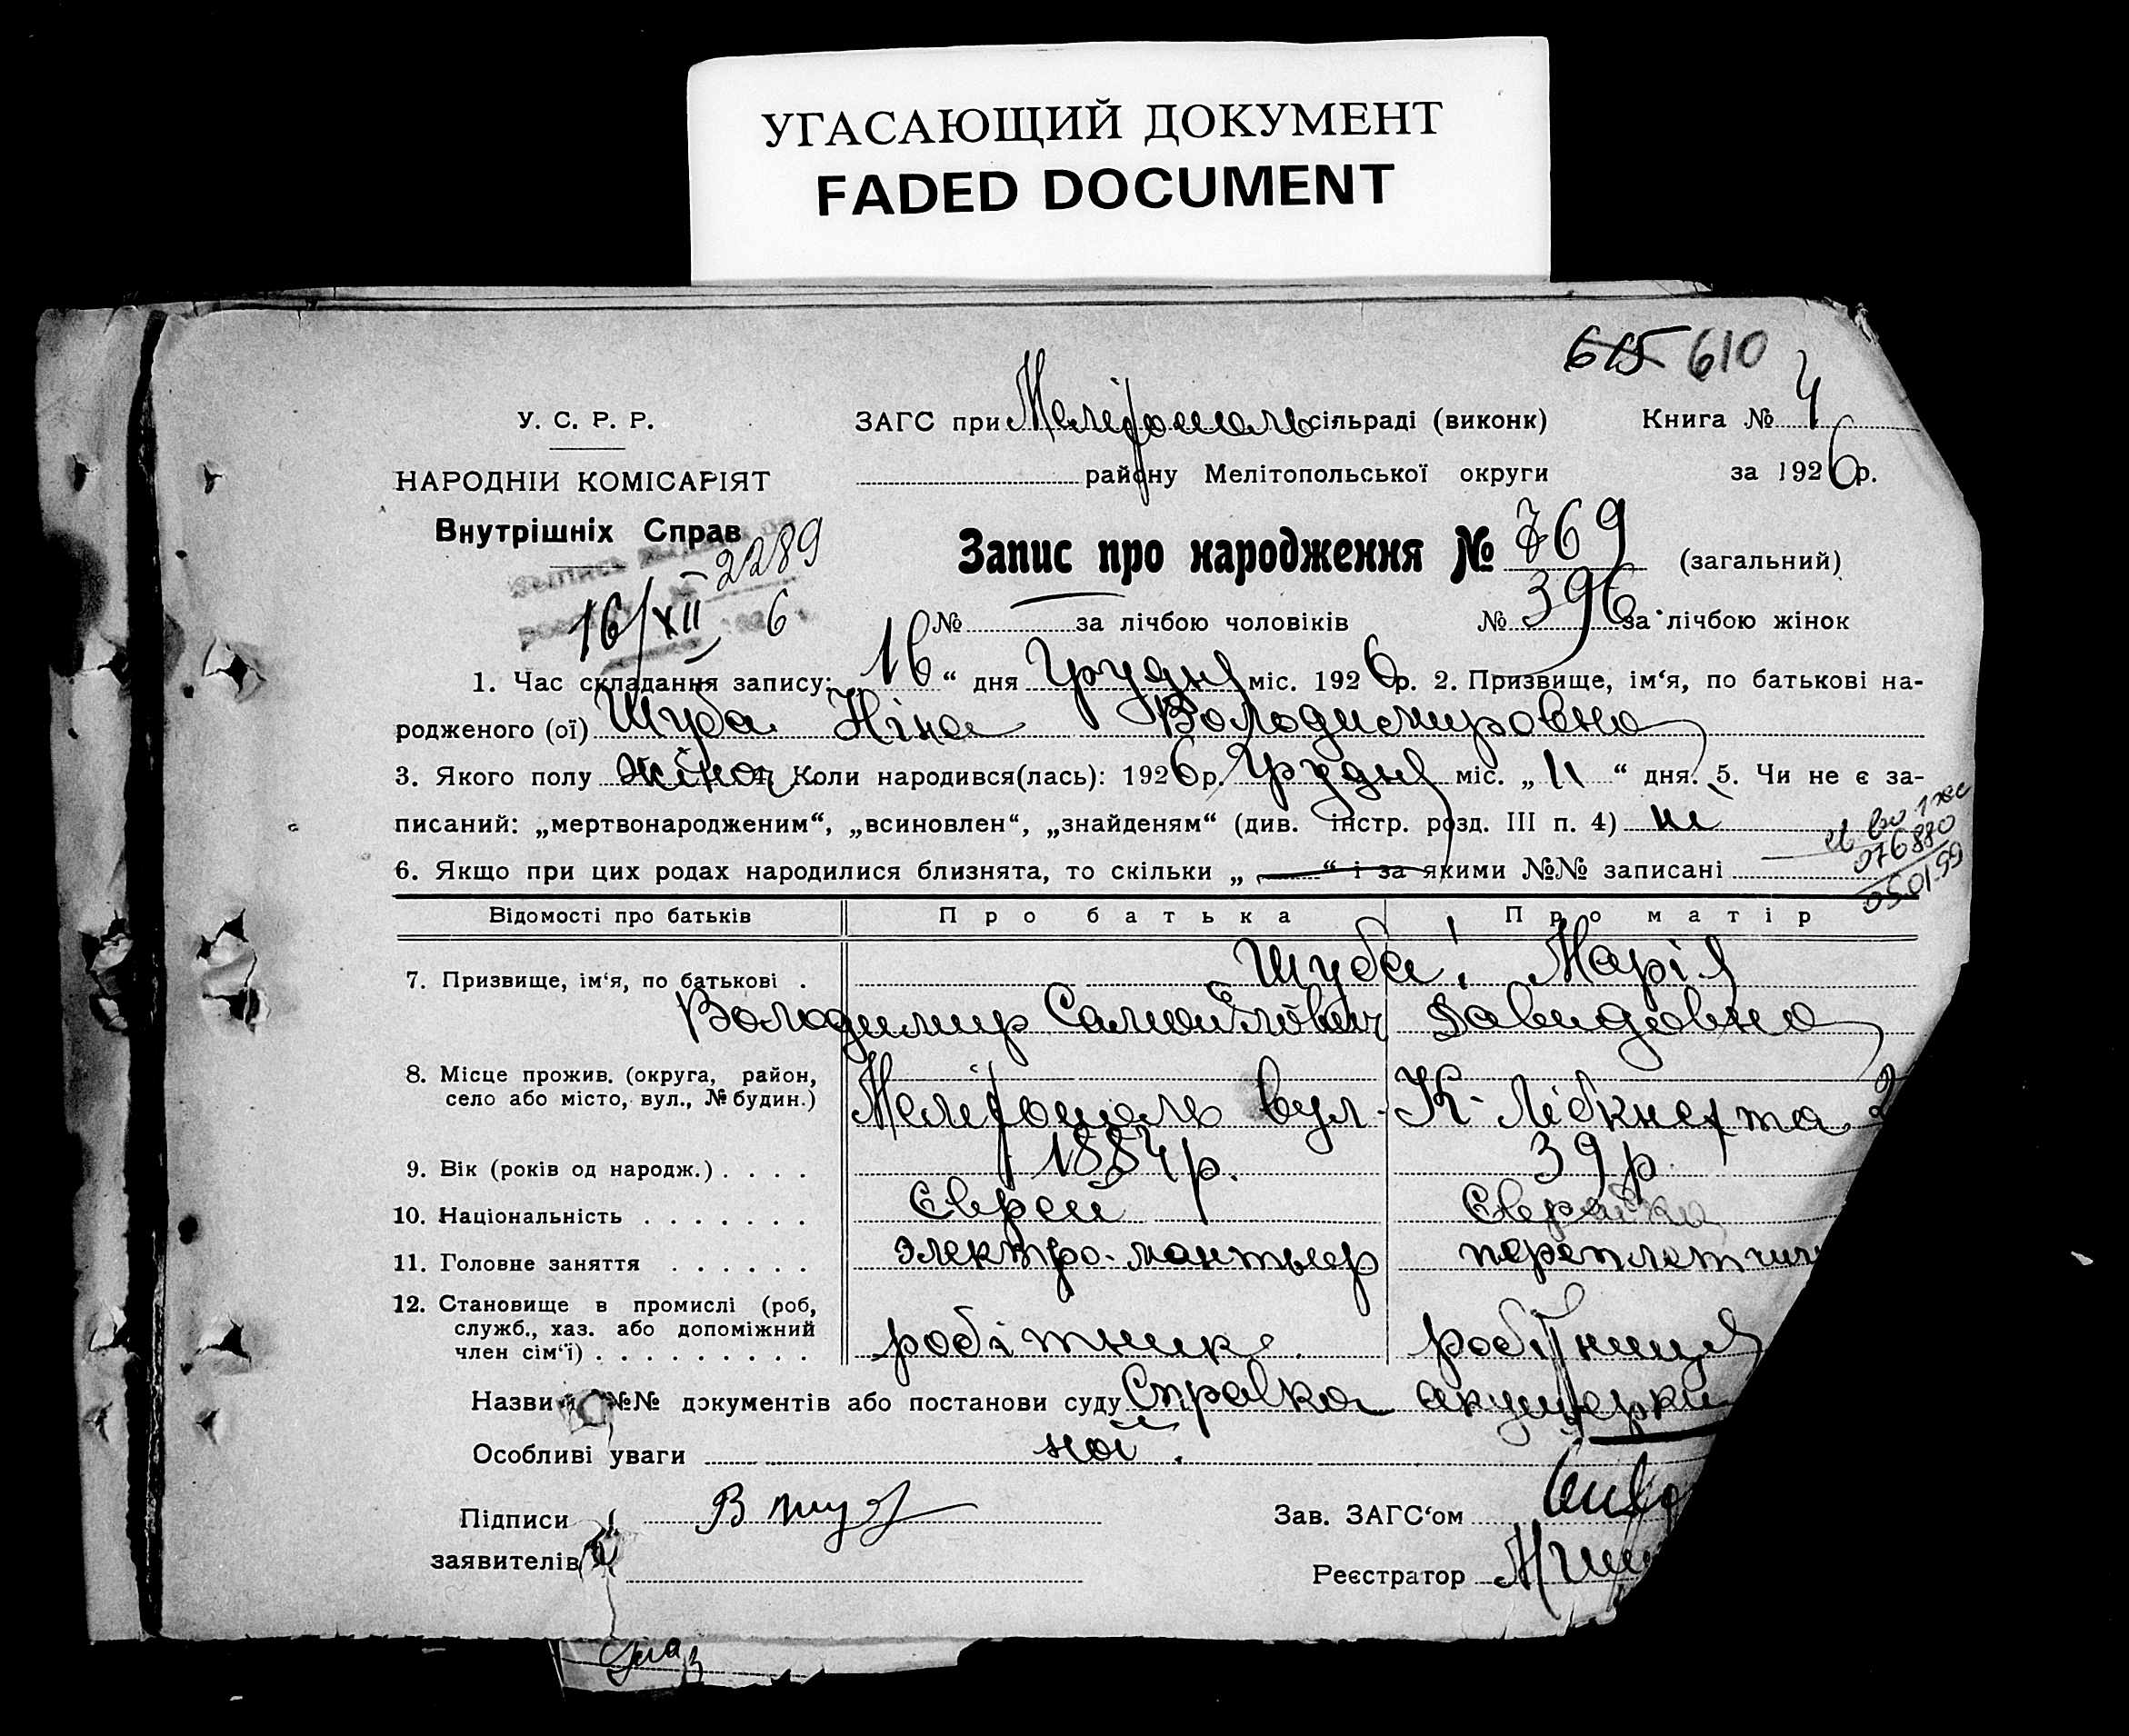 УГАСАЮЩИЙ ДОКУМЕНТ
FADED DOCUMENT
615 610
У. С. Р. Р.
ЗАГС при Мелітополь сільраді (виконк)
Книга № 4
НАРОДНІЙ КОМІСАРІЯТ
району Мелітопольської округи
за 1926 р.
Внутрішніх Справ
2289
16/XII 1926
Запис про народження № 769 (загальний)
№ за лічбою чоловіків № 396 за лічбою жінок
1. Час складання запису: 16 “ дня Грудня міс. 1926 р. 2. Призвище, ім‘я, по батькові на-
родженого (ої) Шуба Ніна Володимировна
3. Якого полу жіноч 4. Коли народився(лась): 1926 р. Грудня міс. „ 11 “ дня. 5. Чи не є за-
писаний: „мертвонародженим“, „всиновлен“, „знайденям“ (див. інстр. розд. III п. 4) ні
076880
05.01.99
6. Якщо при цих родах народилися близнята, то скільки „ “ і за якими №№ записані
Відомості про батьків Про батька Про матір
7. Призвище, ім‘я, по батькові . Шуба: Марія
Володимир Самойлович Давидовна
8. Місце прожив. (округа, район,
село або місто, вул., № будин.) Мелітополь вул. К. Лібкнехта 2
9. Вік (років од народж.) . . . . 1884 р. 39 р.
10. Національність . . . . . . . Єврей Єврейка
11. Головне заняття . . . . . . электро-монтьер переплетчиц
12. Становище в промислі (роб,
служб., хаз. або допоміжний
член сім‘ї) . . . . . . . . . робітник робітниця
Назви і №№ документів або постанови суду Справка акушерки
Особливі уваги ной.
Підписи
заявителів
В Шуба
Зав. ЗАГС‘ом
Реєстратор